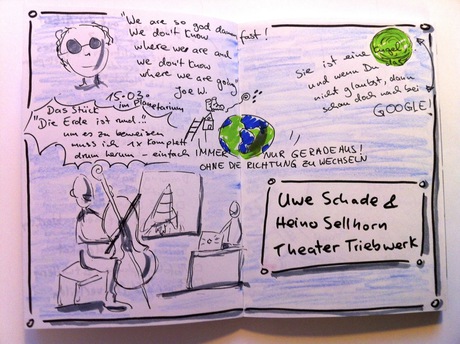 "We are so god damn fast!
We don't know
where we are and
we don't know
where we are going"
Joe W.
15.03.
im Planetarium
Das Stück
"Die Erde ist rund!"
um es zu beweisen
muss ich 1x komplett
drum herum - einfach IMMER NUR GERADEAUS!
OHNE DIE RICHTUNG ZU WECHSELN
Sie ist eine Kugel
und wenn Du
nicht glaubst, dann
schau doch nach bei
GOOGLE!
Uwe Schade &
Heino Sellhorn
Theater Triebwerk